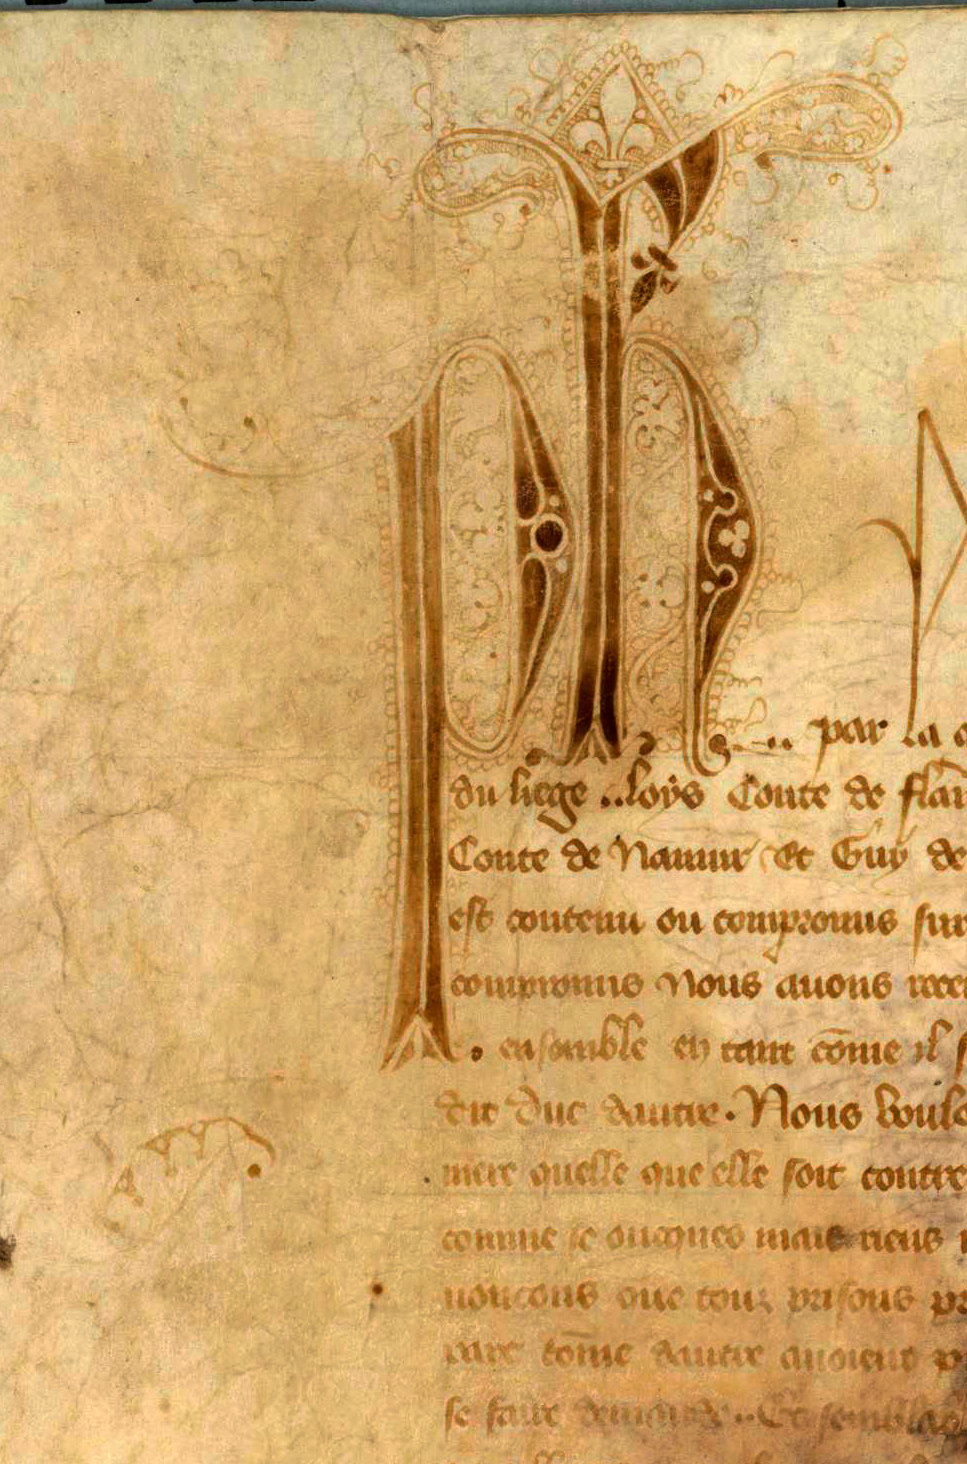 Ph par la
du liege ..loys Conte de flan
Conte de Namur Et Guy de
est contenu ou compromis sur
compromis Nous auons rece
. ensemble en tant cōme il s
dit duc dautre. Nous voulo
mere quelle que elle soit contre
comme se oncques mais riens
noncons que touz prisons pr
part cōme dautre auoient p
se faire demande .. Et semblab